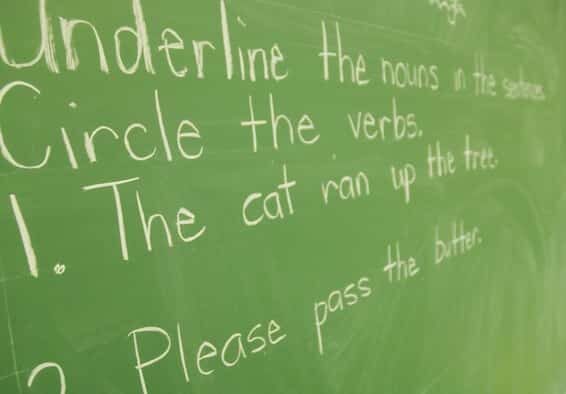 Underline the nouns in the sentences.
Circle the verbs.
1. The cat ran up the tree.
2. Please pass the butter.